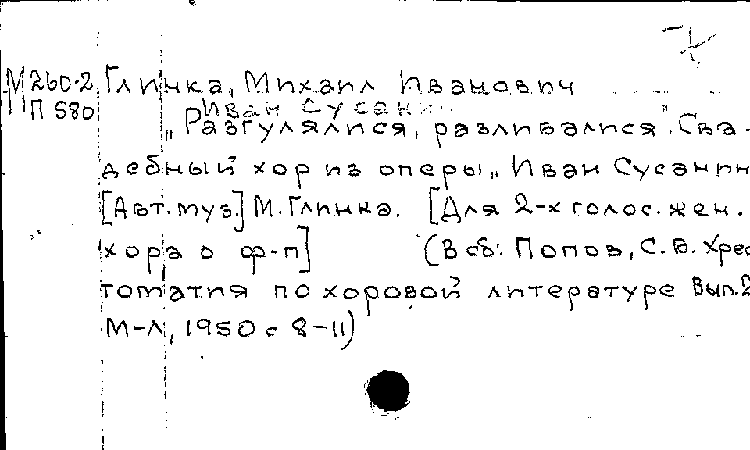 М260-2 Глинка, Михаил Иванович
П 580 Иван Сусанин
„Разгулялися, разливалися". Сва-
дебный хор из оперы „Иван Сусанин
[Авт. муз.] М. Глинка. [Для 2-х голос. жен.
хора с ф-п] (В сб: Попов, С. В. Хрес
томатия по хоровой литературе Вып. 2
М-Л, 1950 с 8-11)